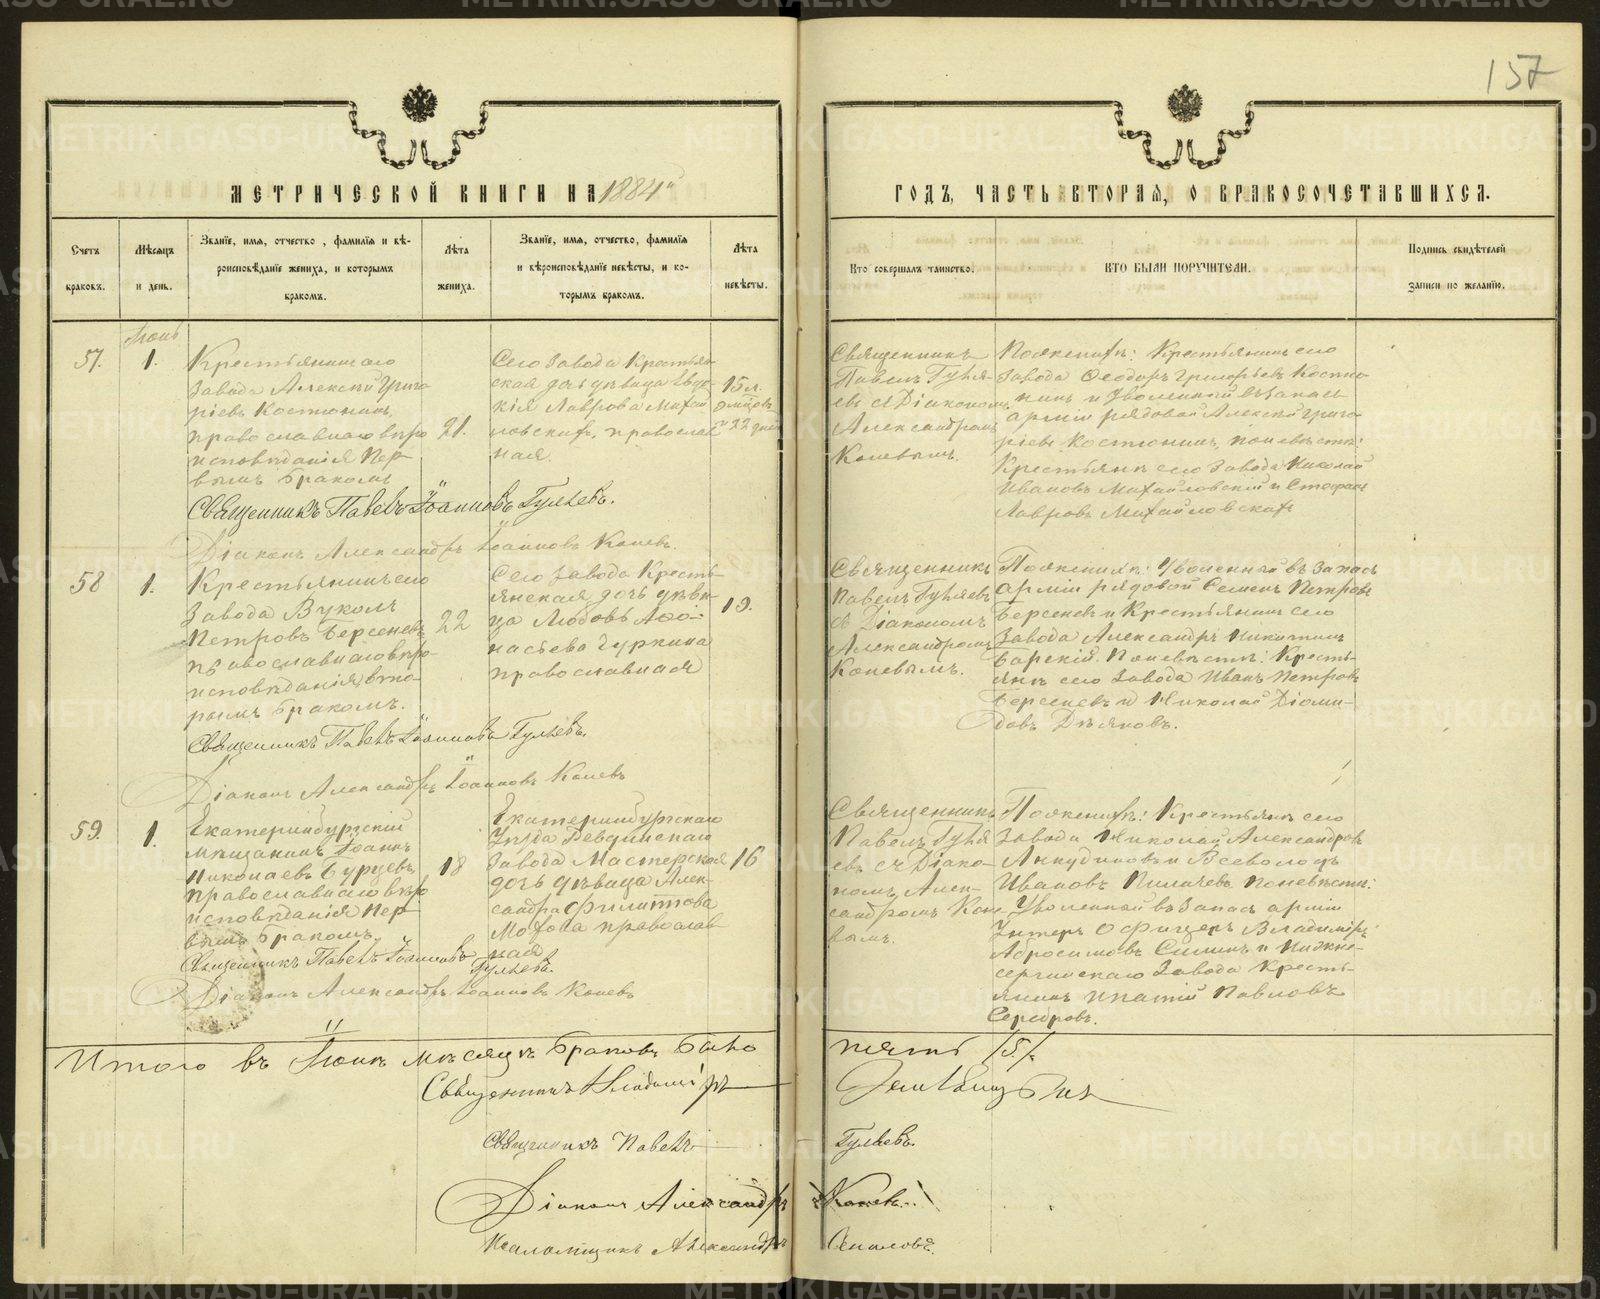 157
МЕТРИЧЕСКОЙ КНИГИ НА 1884й
ГОДЪ, ЧАСТЬ ВТОРАЯ, О БРАКОСОЧЕТАВШИХСЯ.
Счетъ браковъ.
Мѣсяцъ и день.
Званіе, имя, отчество, фамилія и вѣ-
роисповѣданіе жениха, и которымъ
бракомъ.
Лѣта
жениха.
Званіе, имя, отчество, фамилія
и вѣроисповѣданіе невѣсты, и ко-
торымъ бракомъ.
Лѣта
невѣсты.
Кто совершалъ таинство.
КТО БЫЛИ ПОРУЧИТЕЛИ.
Подпись свидѣтелей
записи по желанію.
57.
1.
Крестьянинъ сего
завода Алексѣй Григо
ріевъ Костюнинъ,
православнаго вѣро
исповѣданія Пер
вымъ бракомъ
21.
Сего завода Крестьян
ская дочь дѣвица Евдо
кія Лаврова Михай
ловскихъ, православ
ная.
15 л.
и 22 дня
Священникъ
Павелъ Гуля
евъ съ Діакономъ
Александромъ
Коневымъ.
По женихѣ: Крестьянинъ сего
завода Ѳеодоръ Григорьевъ Костю
нинъ и Уволенный въ запасъ
арміи рядовой Алексѣй Григо
ріевъ Костюнинъ, по невѣстѣ:
Крестьяне сего завода Николай
Ивановъ Михайловскій и Стефанъ
Лавровъ Михайловскихъ
Священникъ Павелъ Іоанновъ Гуляевъ.
Діаконъ Александръ Іоанновъ Коневъ.
58
1.
Крестьянинъ сего
завода Вуколъ
Петровъ Берсеневъ
православнаго вѣро-
исповѣданія, вто-
рымъ бракомъ.
22
Сего завода Кресть-
янская дочь дѣви-
ца Любовь Аѳа-
насьева Чуркина
православная
19.
Священникъ
Павелъ Гуляевъ
съ Діакономъ
Александромъ
Коневымъ.
По женихѣ: Уволенный въ запасъ
арміи рядовой Семенъ Петровъ
Берсеневъ и Крестьянинъ сего
завода Александръ Никитинъ
Барскій. По невѣстѣ: Кресть-
яне сего завода Иванъ Петровъ
Берсеневъ и Николай Діоми-
довъ
Священникъ Павелъ Іоанновъ Гуляевъ.
Діаконъ Александръ Іоанновъ Коневъ
59.
1.
Екатеринбургскій
мѣщанинъ Іоаннъ
Николаевъ Бурцевъ,
православнаго вѣро
исповѣданія Пер
вымъ бракомъ.
18
Екатеринбургскаго
Уѣзда Ревдинскаго
завода Мастерская
дочь дѣвица Алек-
сандра Филиппова
православ
ная
16
Священникъ
Павелъ Гуля
евъ съ Діако-
номъ Алек-
сандромъ Коне
вымъ.
По женихѣ: Крестьяне сего
завода Николай Александровъ
Анкудиновъ и Всеволодъ
Ивановъ По невѣстѣ:
Уволенный въ запасъ арміи
Унтеръ Офицеръ Владиміръ
Абросимовъ Силинъ и Нижне-
сергинскаго завода Кресть-
янинъ Ипатій Павловъ
Серебровъ.
Священникъ Павелъ Іоанновъ
Гуляевъ.
Діаконъ Александръ Іоанновъ Коневъ
Итого въ Іюнѣ мѣсяцѣ браковъ было пять /5/.
Священникъ Владиміръ
Священникъ Павелъ Гуляевъ.
Діаконъ Александръ Коневъ.
Псаломщикъ Александръ
METRIKI.GASO-URAL.RU